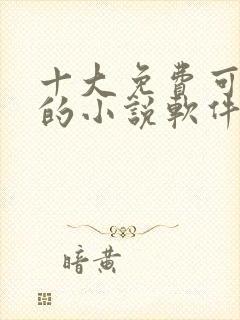 十大免費可
的小說軟件
暗黃